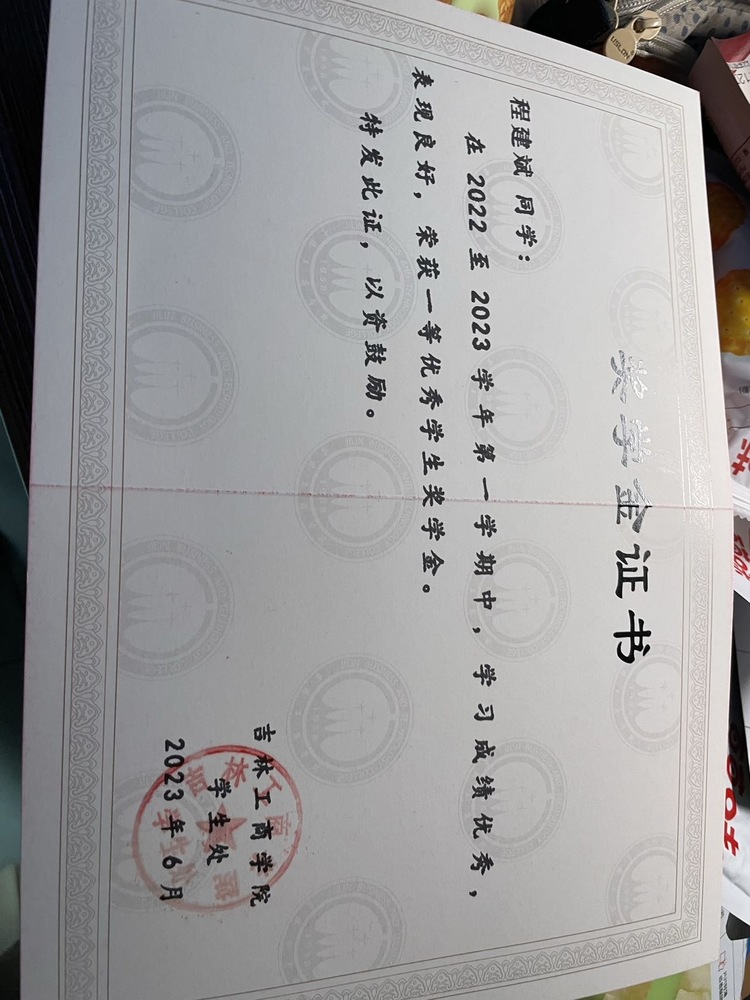 奖学金证书
程建斌 同学：
在 2022 至 2023 学年第一学期中，学习成绩优秀，
表现良好，荣获一等优秀学生奖学金。
特发此证，以资鼓励。
吉林工商学院
学生处
2023年6月